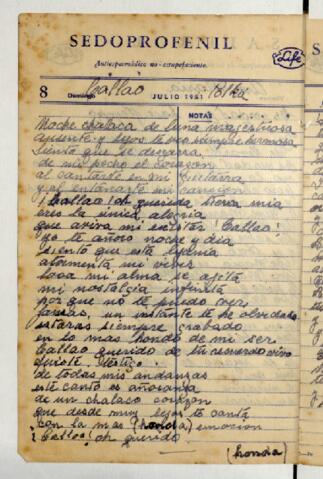 SEDOPROFENIL
Antiespasmódico no-estupefaciente.
Life
8 Domingo JULIO 1951
Callao Polka
NOTAS
Noche chalaca de luna majestuosa
ausente y lejos te veo siempre hermosa
siento que se desgarra
de mi pecho el corazon
al cantarte en mi guitarra
y al entonarte mi cancion
¡Callao! oh querida tierra mia
eres la única alegria
que aviva mi existir! Callao!
yo te añoro noche y dia
siento que esta lejania
atormenta mi vivir
toda mi alma se agita
mi nostalgia infinita
por que no te puedo ver
jamas, un instante te he olvidado
estaras siempre grabado
en lo mas hondo de mi ser
Callao querido de tu recuerdo vivo
de todas mis andanzas
este canto es añoranza
de un chalaco corazon
que desde muy lejos te canta
con la mas (honda) emocion
¡Callao! oh querido
(honda)